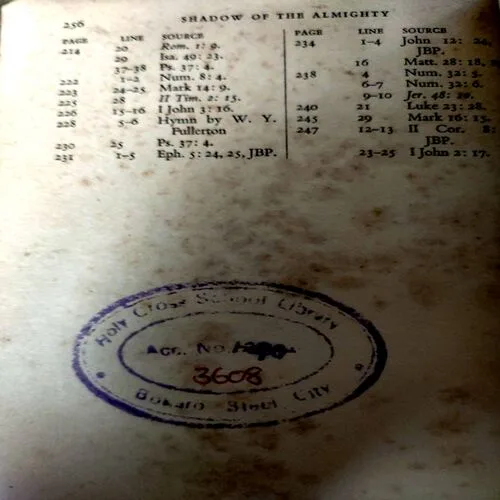 256
SHADOW OF THE ALMIGHTY
PAGE LINE SOURCE
214 20 Rom. 1: 9.
29 Isa. 49: 23.
37-38 Ps. 37: 4.
222 1-2 Num. 8: 4.
223 24-25 Mark 14: 9.
225 28 II Tim. 2: 15.
226 15-16 I John 3: 16.
228 5-6 Hymn by W. Y.
Fullerton
230 25 Ps. 37: 4.
231 1-5 Eph. 5: 24, 25, JBP.
PAGE LINE SOURCE
234 1-4 John 12: 24,
JBP.
16 Matt. 28: 18,
238 4 Num. 32: 5.
6-7 Num. 32: 6.
9-10 Jer. 48: 10.
240 21 Luke 23: 28.
245 29 Mark 16: 15.
247 12-13 II Cor. 8:
JBP.
23-25 I John 2: 17.
Holy Cross School Library
Acc. No.
3608
Bokaro Steel City